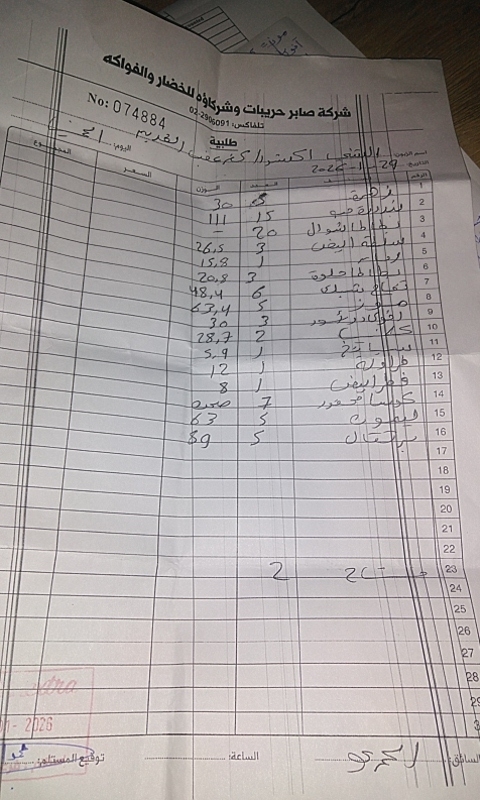 شركة صابر حريبات وشركاؤه للخضار والفواكه
تلفاكس: 02-2906091
No: 074884
طلبية
اسم الزبون:
اليوم:
التاريخ: 29-1-2026
الرقم الصنف العدد الوزن السعر المجموع
1 زهرة 5 30
2 بندورة 15 111
3 بطاطا شوال 20 -
4 بصلة ابيض 3 26,5
5 1 15,8
6 بطاطا حلوة 3 20,8
7 تفاح 6 48,4
8 موز 5 63,4
9 افوكادو 3 30
10 2 28,7
11 سبانخ 1 5,9
12 فراولة 1 12
13 فطر ابيض 1 8
14 كوسا محفور 7 صحن
15 ليمون 5 63
16 برتقال 5 89
17
18
19
20
21
22
23 2
24
25
26
27
28
29
3
السائق:
الساعة:
توقيع المستلم:
dra
01-2026